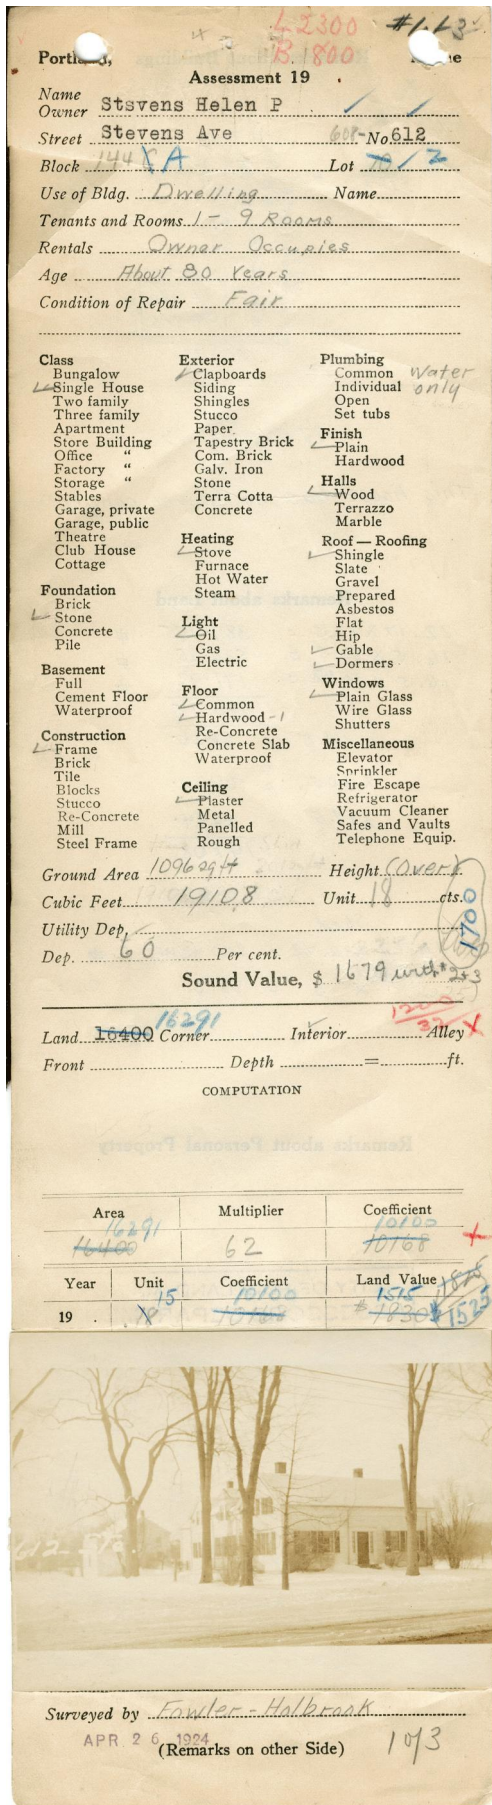 L 2300 #1-13
Portland, B. 1800 Maine
Assessment 19 .
Name
Owner Stsvens Helen P
Street Stevens Ave 608- No. 612
Block 144 A Lot 10 12
Use of Bldg. Dwelling Name
Tenants and Rooms 1 - 9 Rooms
Rentals Owner Occupies
Age About 80 Years
Condition of Repair Fair
Class
Bungalow
Single House
Two family
Three family
Apartment
Store Building
Office "
Factory "
Storage "
Stables
Garage, private
Garage, public
Theatre
Club House
Cottage
Foundation
Brick
Stone
Concrete
Pile
Basement
Full
Cement Floor
Waterproof
Construction
Frame
Brick
Tile
Blocks
Stucco
Re-Concrete
Mill
Steel Frame
Exterior
Clapboards
Siding
Shingles
Stucco
Paper
Tapestry Brick
Com. Brick
Galv. Iron
Stone
Terra Cotta
Concrete
Heating
Stove
Furnace
Hot Water
Steam
Light
Oil
Gas
Electric
Floor
Common
Hardwood - 1
Re-Concrete
Concrete Slab
Waterproof
Ceiling
Plaster
Metal
Panelled
Rough
Plumbing
Common Water
Individual only
Open
Set tubs
Finish
Plain
Hardwood
Halls
Wood
Terrazzo
Marble
Roof — Roofing
Shingle
Slate
Gravel
Prepared
Asbestos
Flat
Hip
Gable
Dormers
Windows
Plain Glass
Wire Glass
Shutters
Miscellaneous
Elevator
Sprinkler
Fire Escape
Refrigerator
Vacuum Cleaner
Safes and Vaults
Telephone Equip.
Ground Area 1096 sq ft Height (Over)
Cubic Feet 19108 Unit 18 cts.
1700
Utility Dep.
Dep. 60 Per cent.
Sound Value, $ 1679 with # 2+3
16291
Land 16400 Corner Interior Alley
Front Depth = ft.
COMPUTATION
Area Multiplier Coefficient
16291 10100
16400 62 10168
Year Unit Coefficient Land Value
15 10100 1515
19 . 18 10168 $ 1830 $ 1525
612 Ste.
Surveyed by Fowler - Holbrook
APR 26 1924
(Remarks on other Side) 1 of 3